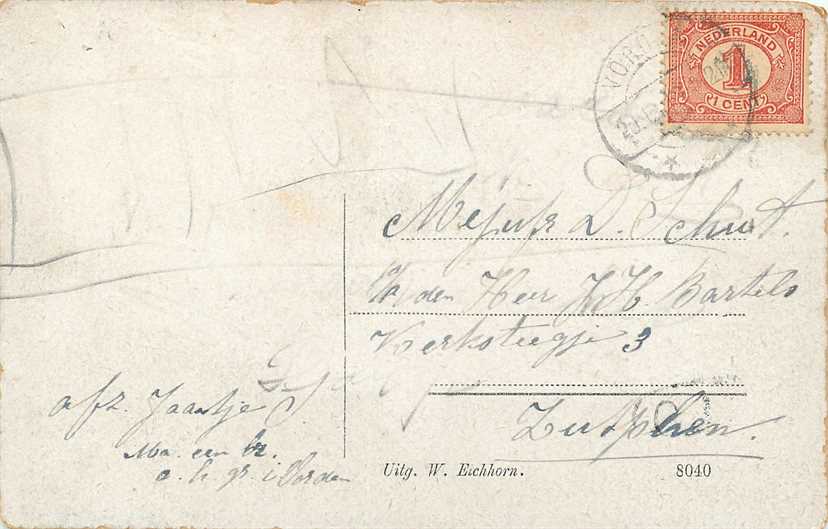 NEDERLAND
1
1 CENT
VORD
Mejufr D. Schut.
den Heer H. Bartels
Kerksteegje 3
Zutphen.
afz. Jaantje S
Ma. een br.
a. h. gr. i Vorden
Uitg. W. Eichhorn.
8040